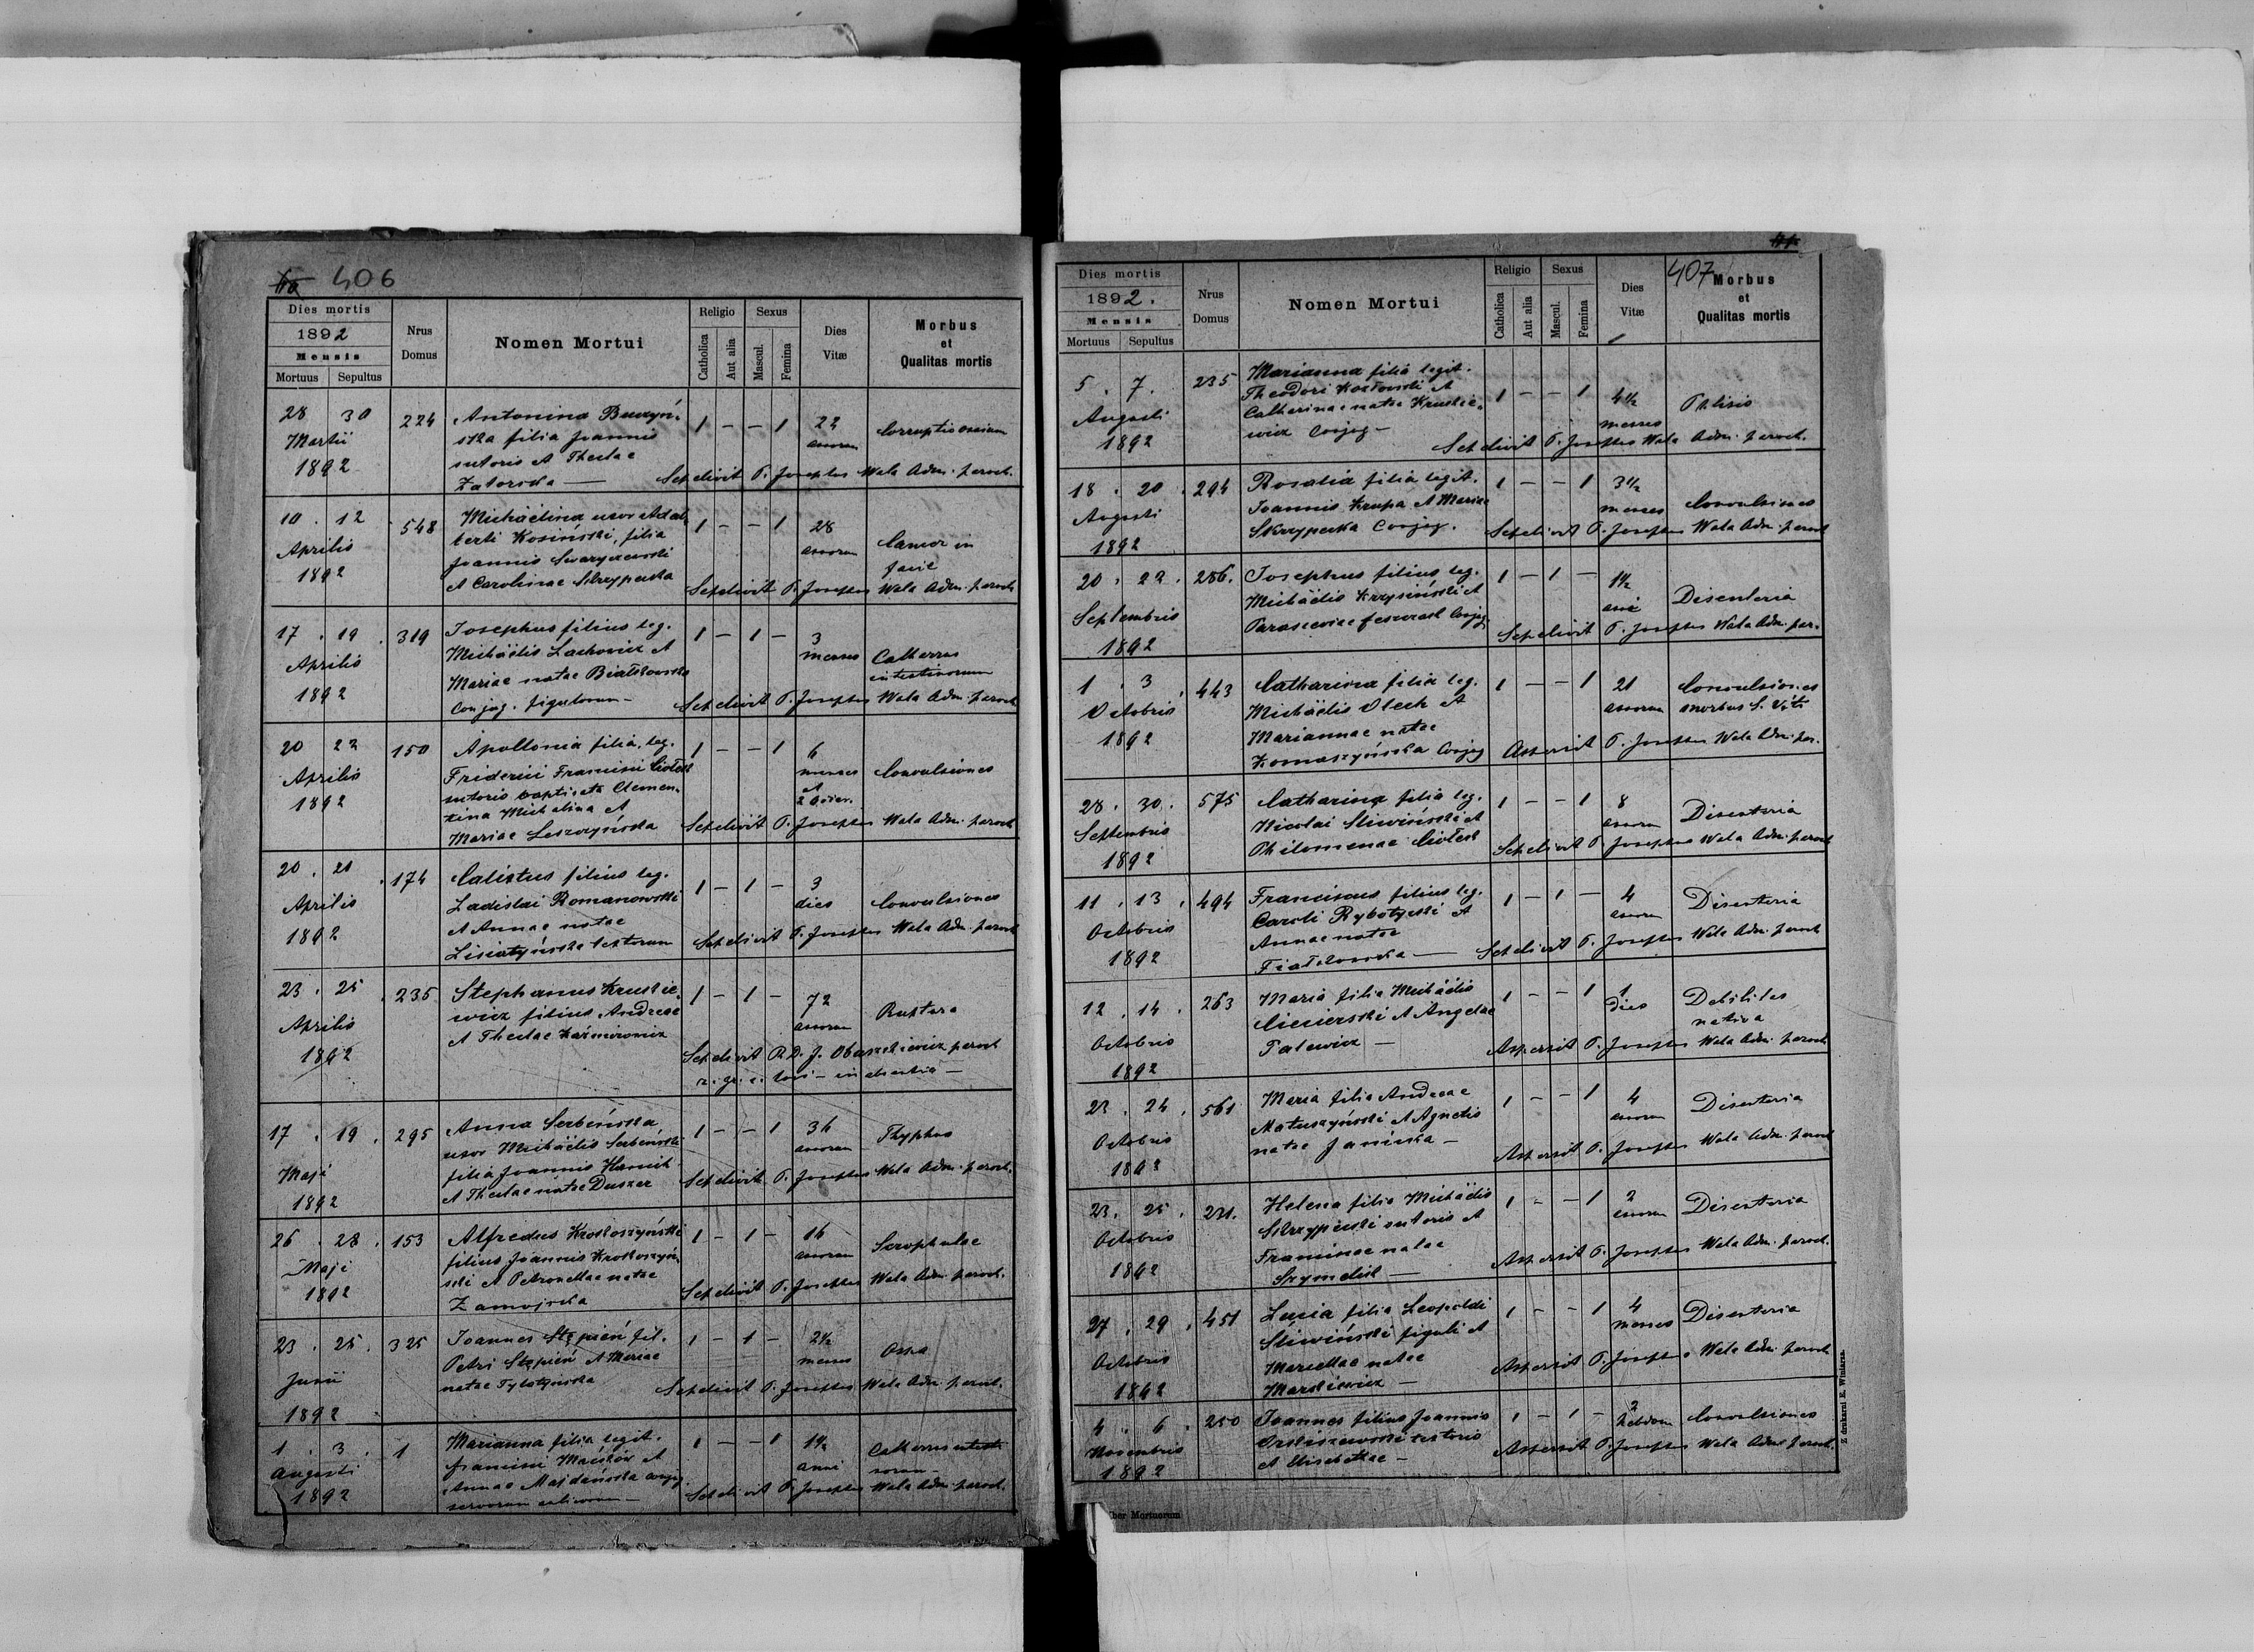 406
Dies mortis
1892
Mensis
Mortuus Sepultus
Nrus Domus
Nomen Mortui
Religio
Catholica Aut alia
Sexus
Mascul. Femina
Dies Vitæ
Morbus et Qualitas mortis
28 30 224 Antonina 1 – – 1 22
Martii ska filia Joannis annorum Corruptio ossium
1892 sutoris et Theclae
Zatorska — Sepelivit P. Josephus Wala Adm. paroch.
10 . 12 548 Michaëlina uxor Adal 1 – – 1 28
Aprilis berti Kosiński, filia annorum Cancer in
1892 Joannis facie
et Carolinae Skrzypecka Sepelivit P. Josephus Wala Adm. paroch
17 . 19 . 319 Josephus filius leg. 1 – 1 – 3
Aprilis Michäelis Lachowicz et menses Catherus
Mariae natae Białkowska intestinorum
1892 Conjug. figulorum – Sepelivit P. Josephus Wala Adm. paroch
20 22 150 Apollonia filia leg. 1 – – 1 6
Aprilis Friderici Francisci Ciołek menses Convulsiones
1892 sutoris Clemen- et
tina Michalina et 2
Mariae Leszczyńska Sepelivit P. Josephus Wala Adm. paroch
20 . 21 . 174 Calistus filius leg. 1 – 1 – 3
Aprilis Ladislai Romanowski dies Convulsiones
1892 et Annae natae
Lisiatyńska textorum Sepelivit P. Josephus Wala Adm. paroch
23 . 25 . 235 Stephanus Kruckie- 1 – 1 – 72
Aprilis wicz filius Andreae annorum Ruptura
1892 et Theclae Kaźmirowicz
Sepelivit R. D. J. paroch
r. gr. c. loci – in absentia –
17 . 19 . 295 Anna Serbeńska, 1 – – 1 36
Maji uxor Michäelis Serbeński annorum Thyphus
1892 filia Joannis
et Theclae natae Duszer Sepelivit P. Josephus Wala Adm. paroch.
26 . 28 . 153 Alfredus Krokoszyński 1 – 1 – 16
Maji filius Joannis Krokoszyń- annorum Scrophulae
1892 ski et Petronellae natae
Zamojska Sepelivit P. Josephus Wala Adm. paroch.
23 . 25 . 325 Joannes Stępień fil. 1 – 1 – 2½
Junii Petri Stępień et Mariae menses Ospa
1892 natae Sepelivit P. Josephus Wala Adm. paroch.
1 . 3 . 1 Marianna filia legit. 1 – – 1 1½
Augusti Francisci et anni Catherus intesti-
1892 Annae Majdańska conjug. norum –
servorum – Sepelivit P. Josephus Wala Adm. paroch.
407
Dies mortis
1892.
Mensis
Mortuus Sepultus
Nrus Domus
Nomen Mortui
Religio
Catholica Aut alia
Sexus
Mascul. Femina
Dies Vitæ
Morbus et Qualitas mortis
5 . 7 . 235 Marianna filia legit. 1 – – 1 4½
Augusti Theodori Kozłowski et menses Phtisis
1892 Catharinae natae Kruckie-
wicz Conjug – Sepelivit P. Josephus Wala Adm. paroch.
18 . 20 . 294 Rosalia filia legit. 1 – – 1 3½
Augusti Joannis Krupa et Mariae menses Convulsiones
1892 Skrzypecka Conjug. Sepelivit P. Josephus Wala Adm. paroch
20 . 22 . 286. Josephus filius leg. 1 – 1 – 1½
Septembris Michäelis Krzysiński et anni Disenteria
1892 Parasceviae Conjug Sepelivit P. Josephus Wala Adm. par.
1 . 3 . 443 Catharina filia leg. 1 – – 1 21 Convulsiones
Octobris Michäelis Olech et annorum morbus S. Viti
1892 Mariannae natae
Komaszyńska Conjug Aspersit P. Josephus Wala Adm. par.
28 . 30 . 575 Catharina filia leg. 1 – – 1 8
Septembris Nicolai Sliwiński et annorum Disenteria
1892 Philomenae Ciołek Sepelivit P. Josephus Wala Adm. paroch
11 . 13 . 494 Franciscus filius leg. 1 – 1 – 4
Octobris Caroli Rybotycki et annorum Disenteria
1892 Annae natae
Fiałkowska — Sepelivit P. Josephus Wala Adm. paroch
12 . 14 . 263 Maria filia Michäelis 1 – – 1 1
Octobris Ciecierski et Angelae dies Debilitas nativa
1892 Palewicz — Aspersit P. Josephus Wala Adm. paroch
22 . 24 . 561 Maria filia Andreae 1 – – 1 4
Octobris Matuszyński et Agnetis annorum Disenteria
1892 natae Janicka – Aspersit P. Josephus Wala Adm. paroch
23 . 25 . 221. Helena filia Michäelis 1 – – 1 2
Octobris Skrzypecki sutoris et annorum Disenteria
1892 Franciscae natae
Szymelik — Aspersit P. Josephus Wala Adm. paroch.
27 . 29 . 451 Lucia filia Leopoldi 1 – – 1 4
Octobris Śliwiński figuli et menses Disenteria
1892 Marcellae natae
Markiewicz — Aspersit P. Josephus Wala Adm. paroch
4 . 6 . 250 Joannes filius Joannis 1 – 1 – 2
Novembris textoris hebdom Convulsiones
1892 et Elisabethae – Aspersit P. Josephus Wala Adm. paroch.
Liber Mortuorum
Z drukarni E. Winiarza.